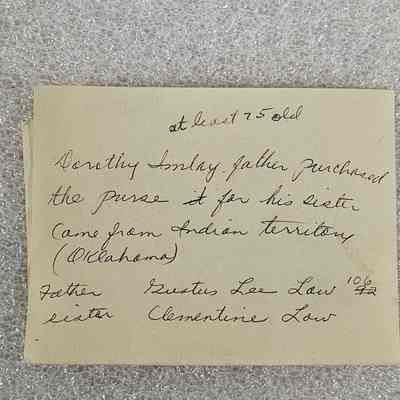 at least 75 old
Dorothy Imlay father purchased
the purse it for his sister
Came from Indian territory
(Oklahoma)
Father Gustus Lee Law 106
sister Clementine Law